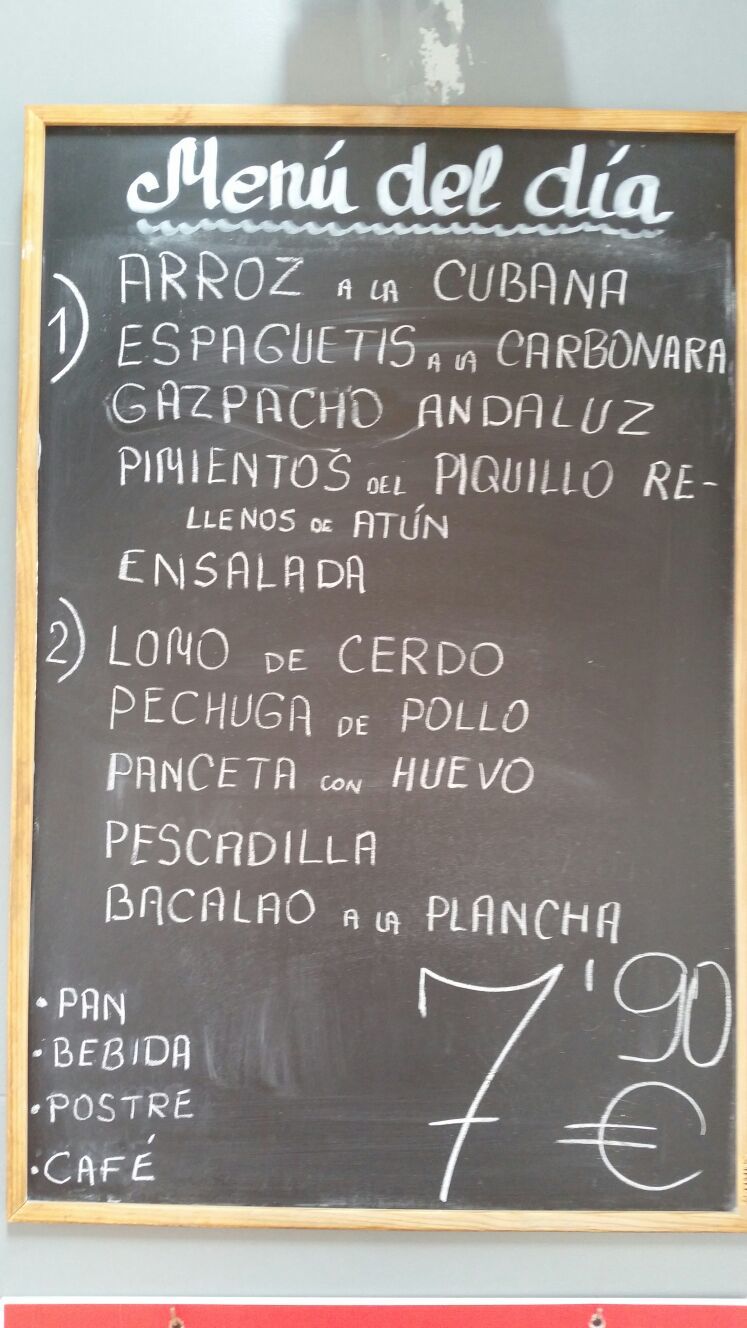 Menú del día
1) ARROZ A LA CUBANA
ESPAGUETIS A LA CARBONARA
GAZPACHO ANDALUZ
PIMIENTOS DEL PIQUILLO RE-
LLENOS DE ATÚN
ENSALADA
2) LOMO DE CERDO
PECHUGA DE POLLO
PANCETA CON HUEVO
PESCADILLA
BACALAO A LA PLANCHA
· PAN
· BEBIDA
· POSTRE
· CAFÉ
7'90 €